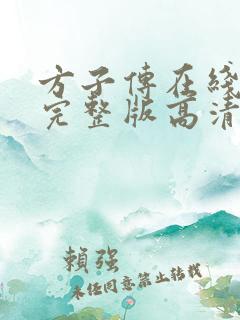 方子傅在綫
完整版高清
賴強
未经同意禁止转载